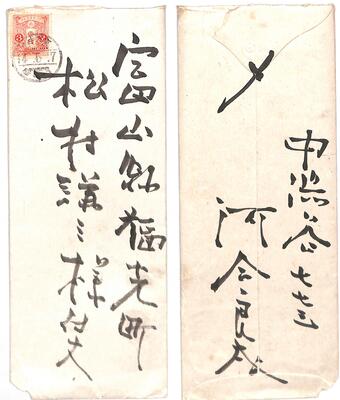 富山縣福光町
松村謙三様
〆
中澁谷七七三
河合良成